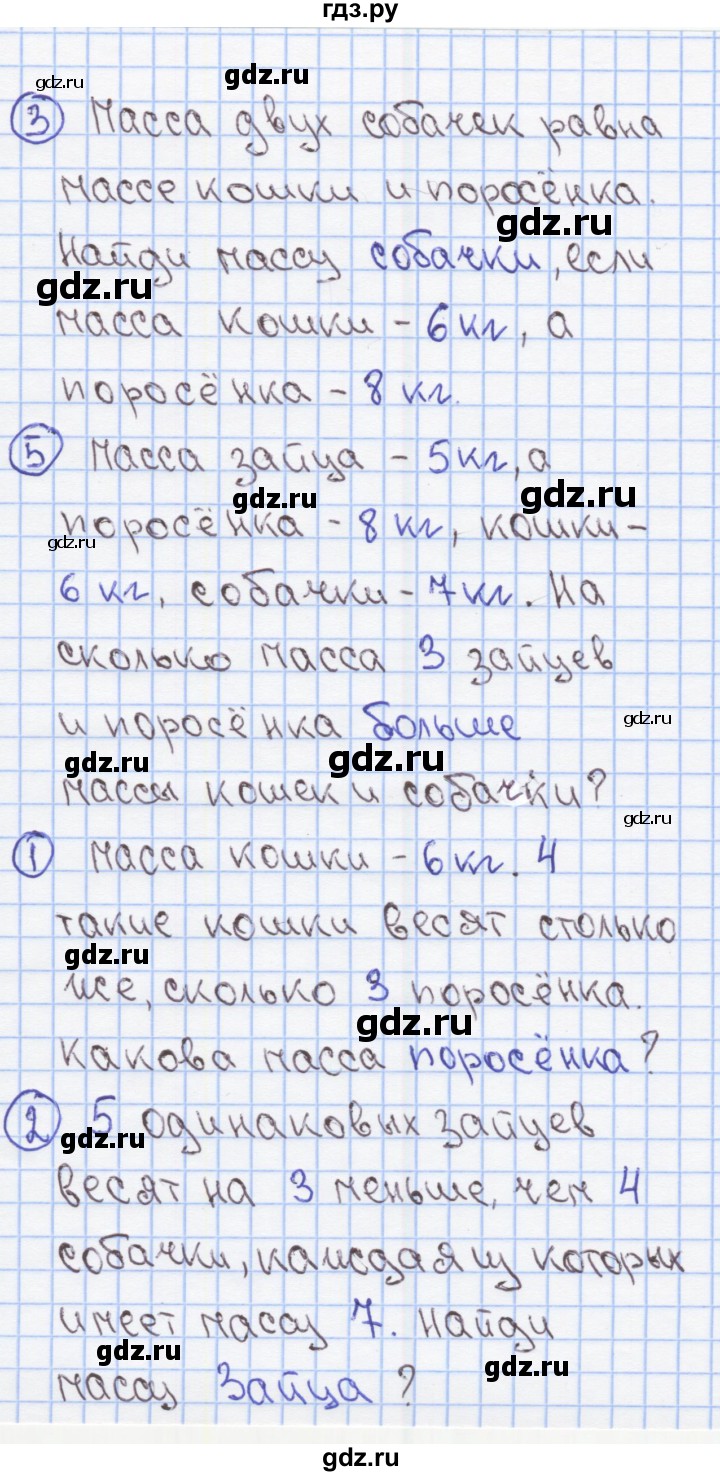 гдз.ру
gdz.ru
gdz.ru
3 Масса двух собачек равна
массе кошки и поросёнка.
gdz.ru
Найди массу собачки, если
gdz.ru
масса кошки - 6 кг, а
поросёнка - 8 кг.
5 Масса зайца - 5 кг, а
gdz.ru
gdz.ru
поросёнка - 8 кг, кошки-
gdz.ru
6 кг, собачки - 7 кг. На
сколько масса 3 зайцев
и поросёнка больше
gdz.ru
gdz.ru
gdz.ru
массы кошек и собачки?
gdz.ru
1 Масса кошки - 6 кг. 4
такие кошки весят столько
gdz.ru
же, сколько 3 поросёнка.
gdz.ru
Какова масса поросёнка?
2 5 одинаковых зайцев
gdz.ru
весят на 3 меньше, чем 4
собачки, каждая из которых
имеет массу 7. Найди
gdz.ru
gdz.ru
массу Зайца?
gdz.ru